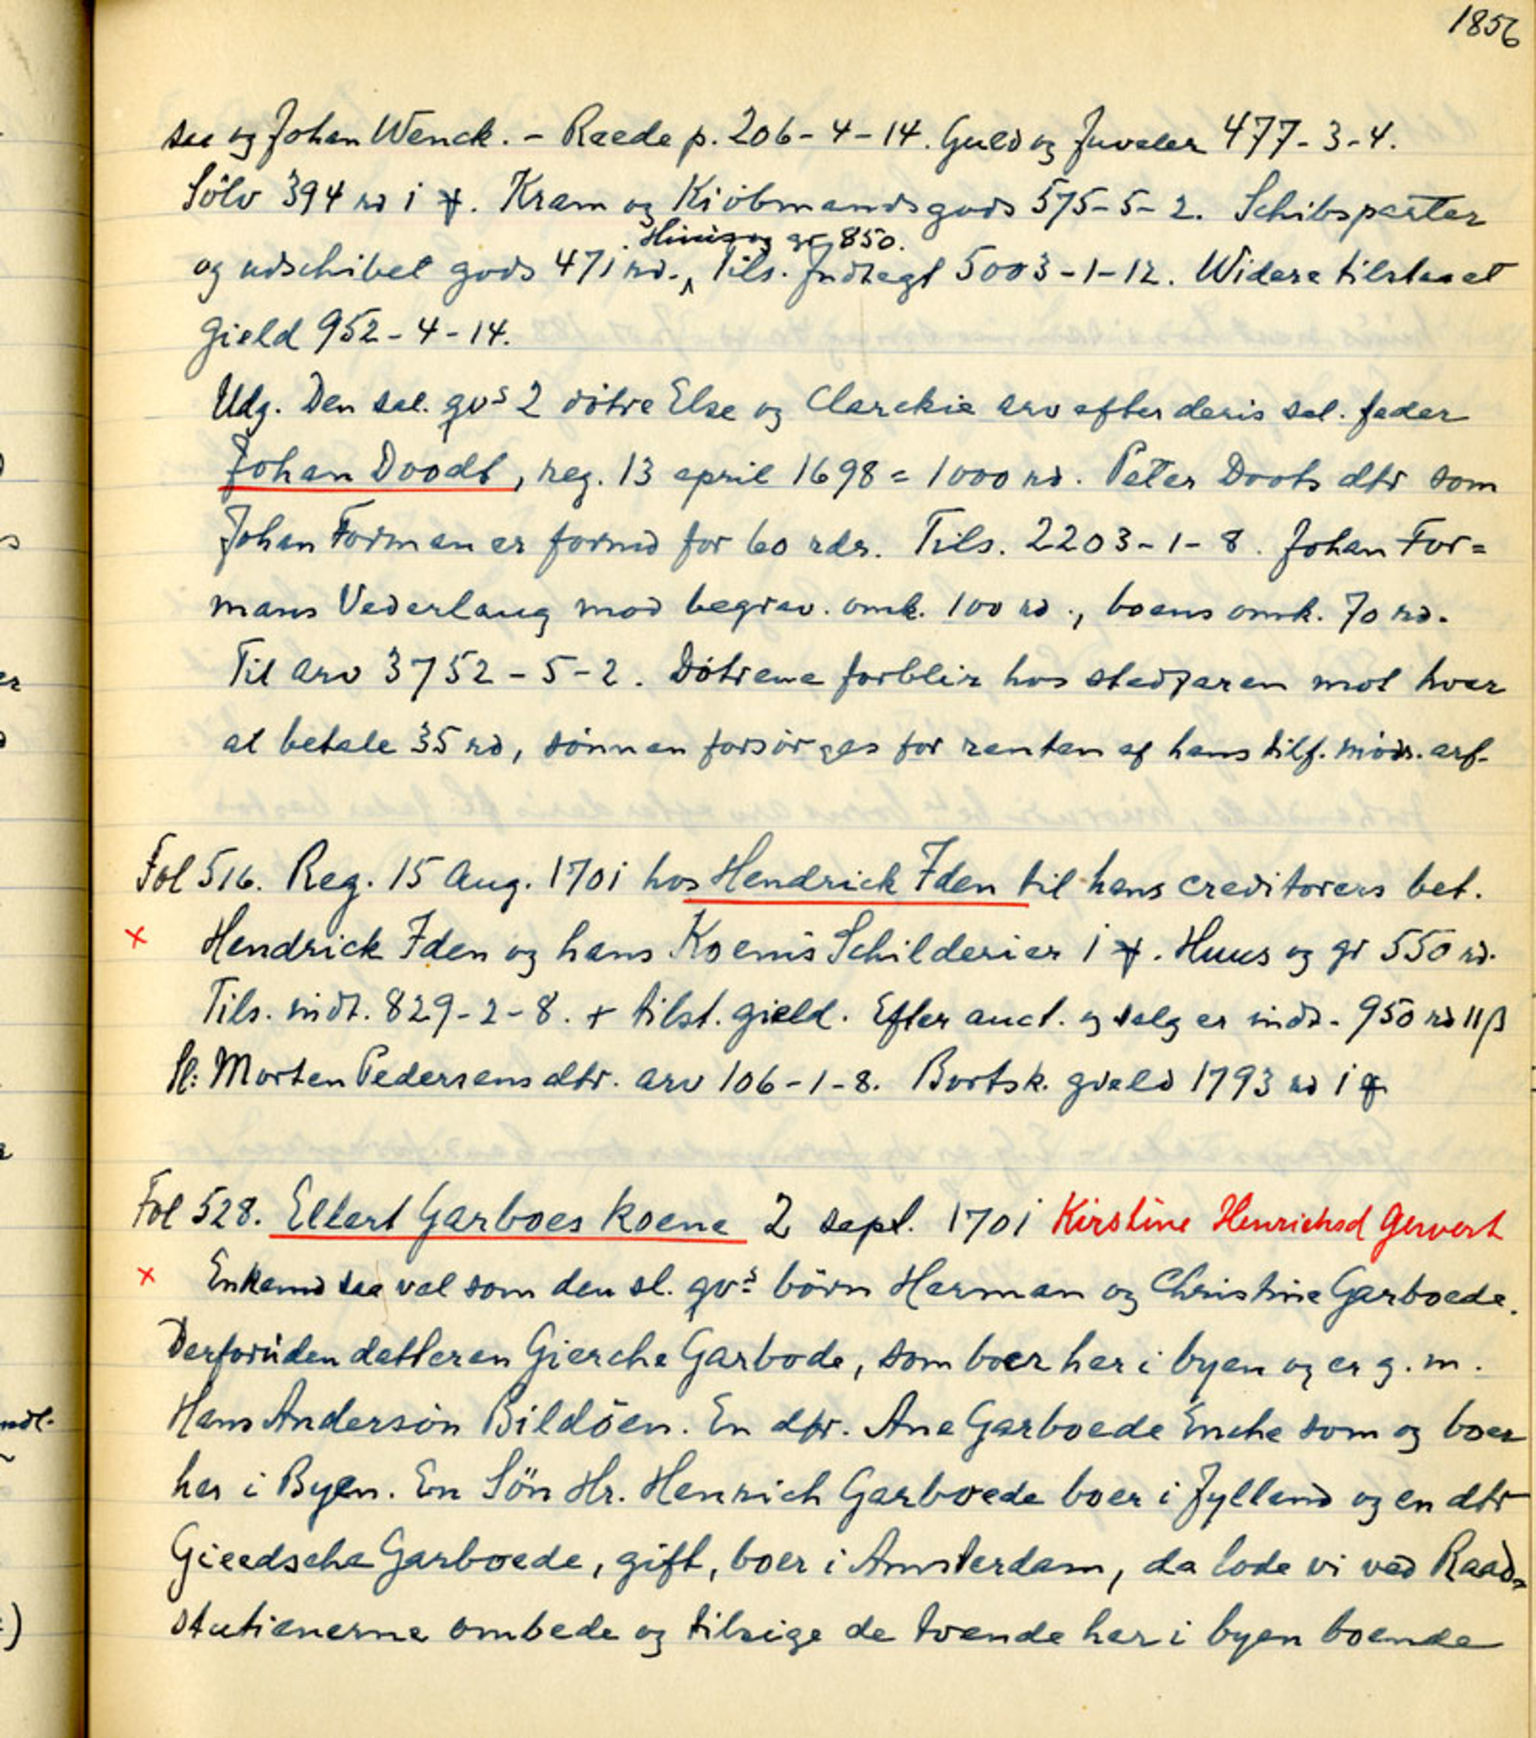 1856
saa og Johan Wenck. - Reede p. 206-4-14. Guld og Juveler 477-3-4.
Sölv 394 rd i . Kram og Kiöbmandsgods 575-5-2. Schibsparter
Huus og gr 850.
og udschibet gods 471 rd. Tils. Indtegt 5003-1-12. Widere tilstaaet
gield 952-4-14.
Udg. Den sal. qvs 2 döttre Else og Clarckie arv efter deris sal. fader
Johan Doodt, reg. 13 april 1698 = 1000 rd. Peter Doots dtr som
Johan Forman er formd for 60 rdr. Tils. 2203-1-8. Johan For=
mans Vederlaug mod begrav. omk. 100 rd., boens omk. 70 rd.
Til arv 3752-5-2. Döttrene forblir hos stedfaren mot hver
at betale 35 rd, sönnen forsörges for renten af hans tilf. mödr. arf.
Fol 516. Reg. 15 Aug. 1701 hos Hendrick Iden til hans creditorers bet.
x Hendrick Iden og hans Koenis Schilderier i . Huus og gr 550 rd.
Tils. indt. 829-2-8. + tilst. gield. Efter auct. og salg er indt. 950 rd 11 β
Sl: Morten Pedersens dtr. arv 106-1-8. Bortsk. gield 1793 rd i
Fol 528. Ellert Garboes koene 2 sept. 1701 Kirstine Henrichsd Gervert
x Enkemd saa vel som den sl. qvs börn Herman og Christine Garboede.
Derforuden datteren Gierche Garbode, som boer her i byen og er g. m.
Hans Andersön Bildöen. En dtr. Ane Garboede Enche som og boer
her i Byen. En Sön Hr. Henrich Garboede boer i Jylland og en dtr
Gieedsche Garboede, gift, boer i Amsterdam, da lode vi ved Raad=
stutienerne ombede og tilsige de tvende her i byen boende